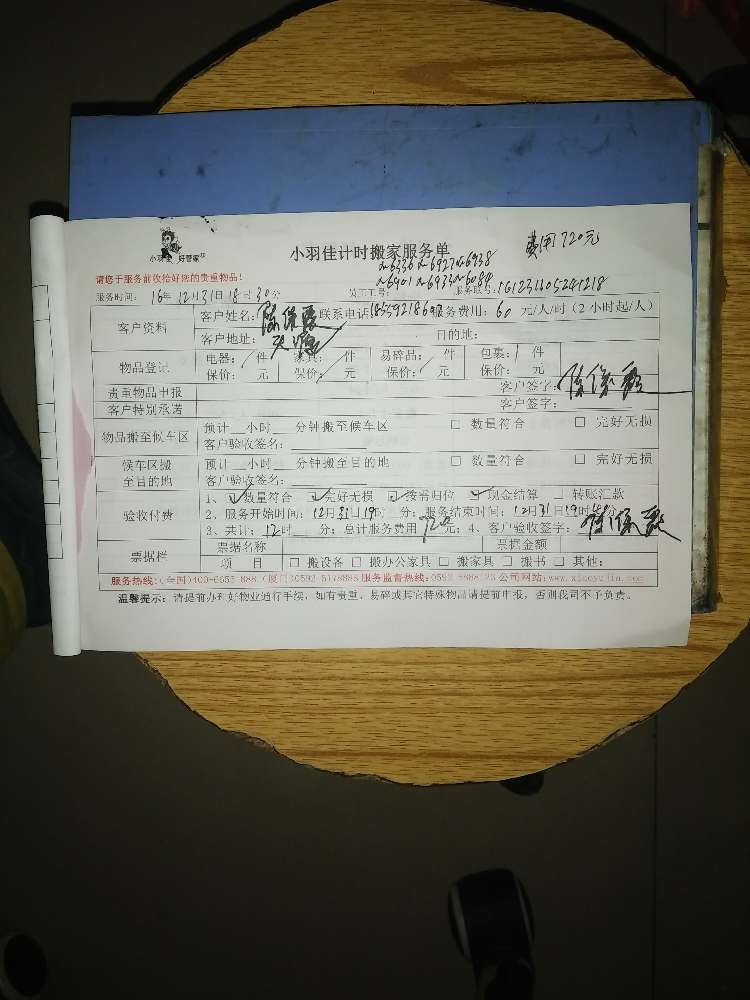 小羽佳 好管家
小羽佳计时搬家服务单
费用720元
N6336 N6927 N6938
N6901 N6933 N6084
请您于服务前收拾好您的贵重物品!
服务时间: 16年12月31日18时30分 员工工号: 服务账号: 161231105241218
客户资料
客户姓名: 联系电话 服务费用: 60 元/人/时(2小时起/人)
客户地址: 天湖 目的地:
物品登记
电器: 件 家具: 件 易碎品: 件 包裹: 件
保价: 元 保价: 元 保价: 元 保价: 元
贵重物品申报 客户签字:
客户特别承诺 客户签字:
物品搬至候车区
预计 小时 分钟搬至候车区 □ 数量符合 □ 完好无损
客户验收签名:
候车区搬至目的地
预计 小时 分钟搬至目的地 □ 数量符合 □ 完好无损
客户验收签名:
验收付费
1、☑数量符合 ☑完好无损 ☑按需归位 ☑现金结算 □ 转账汇款
2、服务开始时间: 12月31日19时 分; 服务结束时间: 12月31日19时 分;
3、共计: 12时 分; 总计服务费用 720 元; 4、客户验收签字:
票据栏
票据名称 票据金额
项 目 □ 搬设备 □ 搬办公家具 □ 搬家具 □ 搬书 □ 其他:
服务热线:(全国)400-6655-888 (厦门)0592-5178888 服务监督热线:0592-5888123 公司网站:www.xiaoyujia.com
温馨提示: 请提前办理好物业通行手续,如有贵重、易碎或其它特殊物品请提前申报,否则我司不予负责。